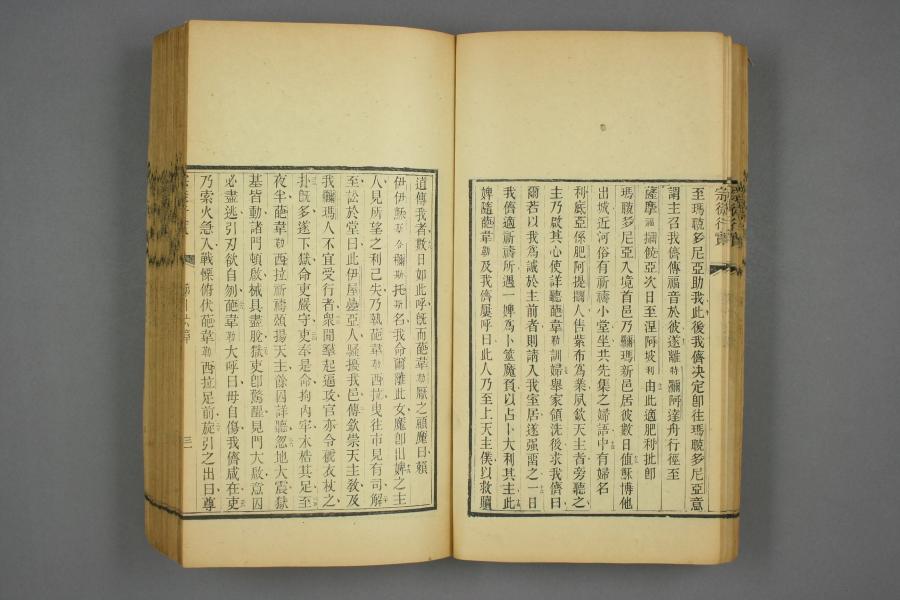 宗徒行實
至瑪竭多尼亞助我此後我儕决定卽往瑪竭多尼亞意
謂主召我儕傳福音於彼遂離特囉阿達舟行徑至
薩摩福攝佊亞次日至涅阿坡利由此適肥利批卽
瑪竭多尼亞入境首邑乃囉瑪新邑居彼數日值穌博他
出城近河俗有祈禱小堂坐共先集之婦語中有婦名
利底亞係肥阿提囉人售紫布爲業夙欽天主者旁聽之
主乃啟其心使詳聽葩韋勒訓婦舉家領洗後求我儕曰
爾若以我爲誠於主前者則請入我室居遂强畱之一日
我儕適祈禱所遇一婢爲卜筮魔質以占卜大利其主此
婢隨葩韋勒及我儕屢呼曰此人乃至上天主僕以救贖
道傳我者數日如此呼旣而葩韋勒厭之顧魔曰賴
伊伊穌斯合囉斯托斯名我命爾離此女魔卽出婢之主
人見所望之利已失乃執葩韋勒西拉曳往市見有司解
至訟於堂曰此伊屋疊亞人騷擾我邑傳欽崇天主敎及
我囉瑪人不宜受行者衆聞羣起逼攻官亦令褫衣杖之
扑旣多遂下獄命吏嚴守吏奉是命拘內牢木梏其足至
夜半葩韋勒西拉祈禱頌揚天主餘囚詳聽忽地大震獄
基皆動諸門頓啟械具盡脫獄吏卽驚醒見門大啟意囚
必盡逃引刃欲自刎葩韋勒大呼曰毋自傷我儕咸在吏
乃索火急入戰慄俯伏葩韋勒西拉足前旋引之出曰尊
三